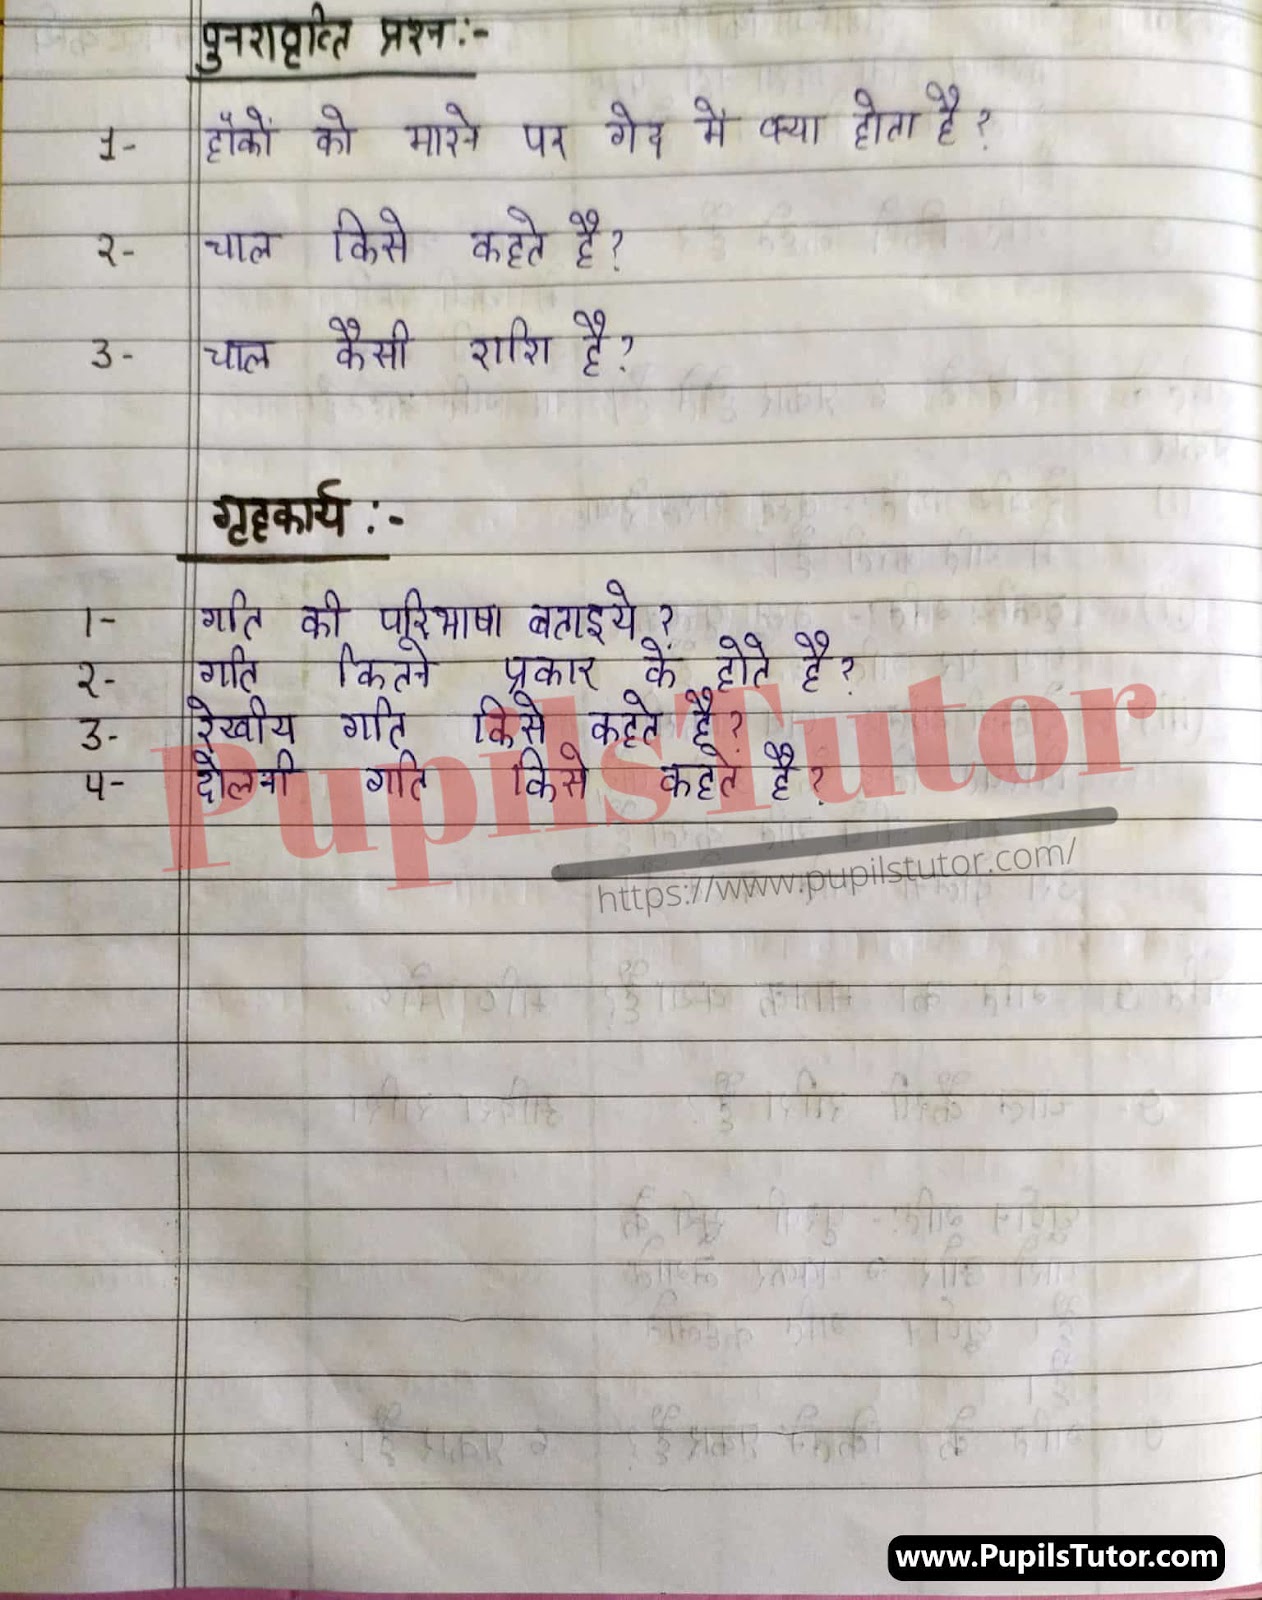 पुनरावृत्ति प्रश्न:-
1- हॉकों को मारने पर गेद में क्या होता है?
२- चाल किसे कहते है?
3- चाल कैसी राशि है?
गृहकार्य :-
1- गति की परिभाषा बताइये?
२- गति कितने प्रकार कें होते है?
3- रेखीय गति किसे कहते है?
४- दोलनी गति किसे कहते है?
PupilsTutor
https://www.pupilstutor.com/
www.PupilsTutor.com